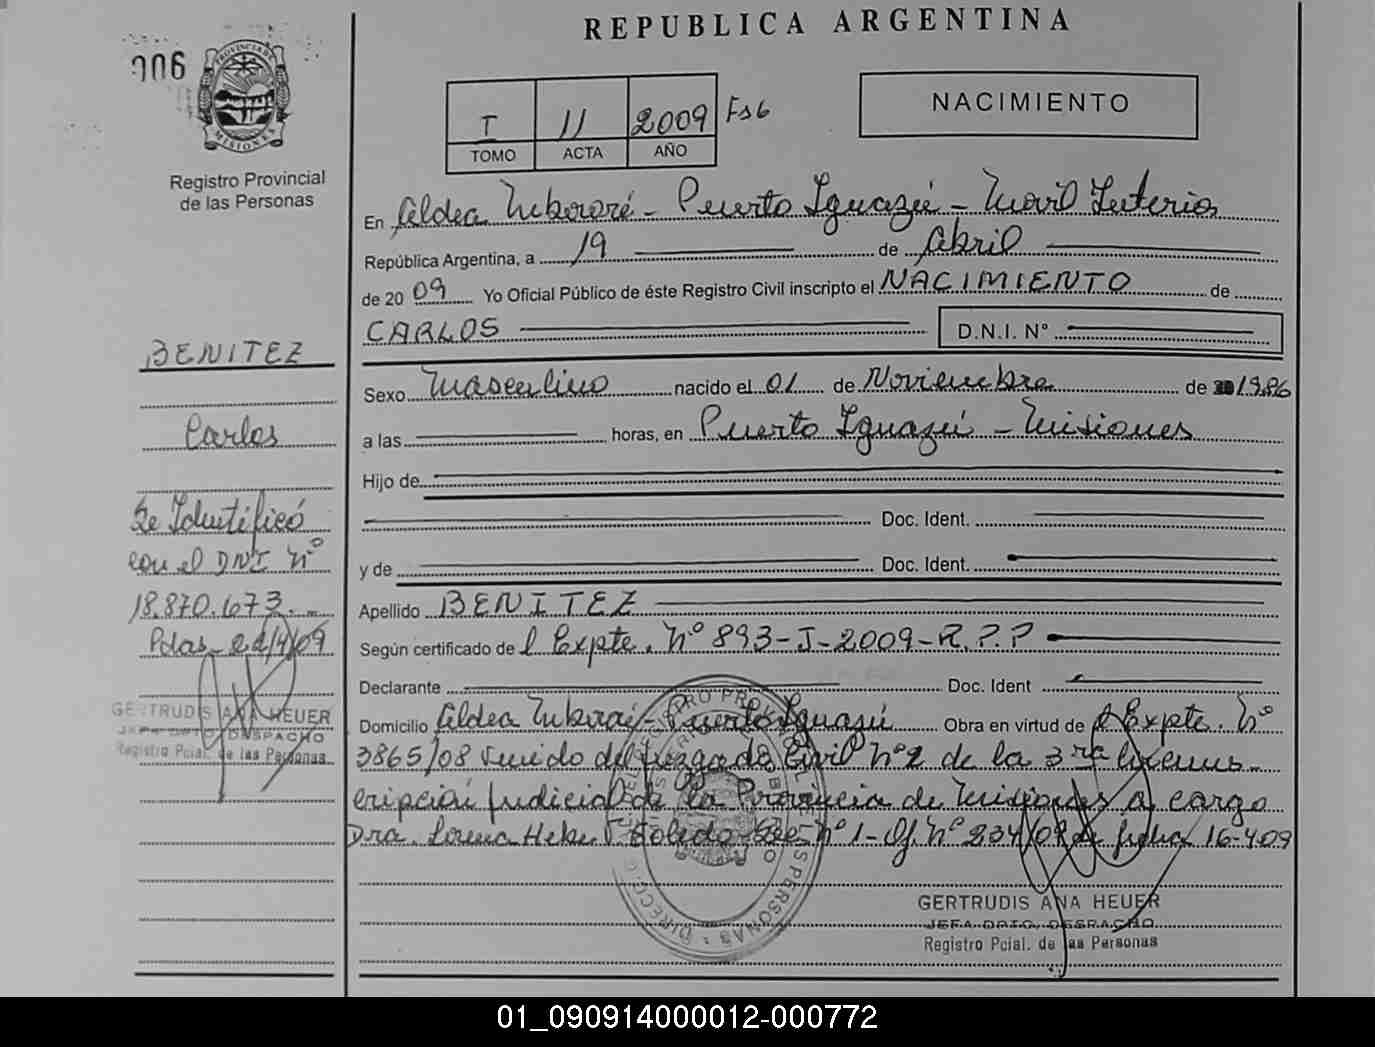 REPUBLICA ARGENTINA
006
PROVINCIA DE
MISIONES
Registro Provincial
de las Personas
NACIMIENTO
I 11 2009 Fs6
TOMO ACTA AÑO
En Aldea Mbororé - Puerto Iguazú - Móvil Interior
República Argentina, a 19 de Abril
de 20 09 Yo Oficial Público de éste Registro Civil inscripto el NACIMIENTO de
CARLOS D.N.I. N°
BENITEZ
Carlos
Se Identificó
con el DNI N°
18.870.673.
Pdas - 22/4/09
GERTRUDIS ANA HEUER
JEFA DPTO. DESPACHO
Registro Pcial. de las Personas
Sexo Masculino nacido el 01 de Noviembre de 20 1986
a las horas, en Puerto Iguazú - Misiones
Hijo de
Doc. Ident.
y de Doc. Ident.
Apellido BENITEZ
Según certificado de l Expte. N° 893-J-2009-R.P.P
Declarante Doc. Ident
Domicilio Aldea - Puerto Iguazú Obra en virtud de l Expte. N°
3865/08 venido del Juzgado Civil N°2 de la 3ra Circuns-
cripción Judicial de la Provincia de Misiones a cargo
Dra. Toledo Sec. N°1 - Of. N° 234/09 de fecha 16-4-09
GERTRUDIS ANA HEUER
JEFA DPTO. DESPACHO
Registro Pcial. de las Personas
01_090914000012-000772